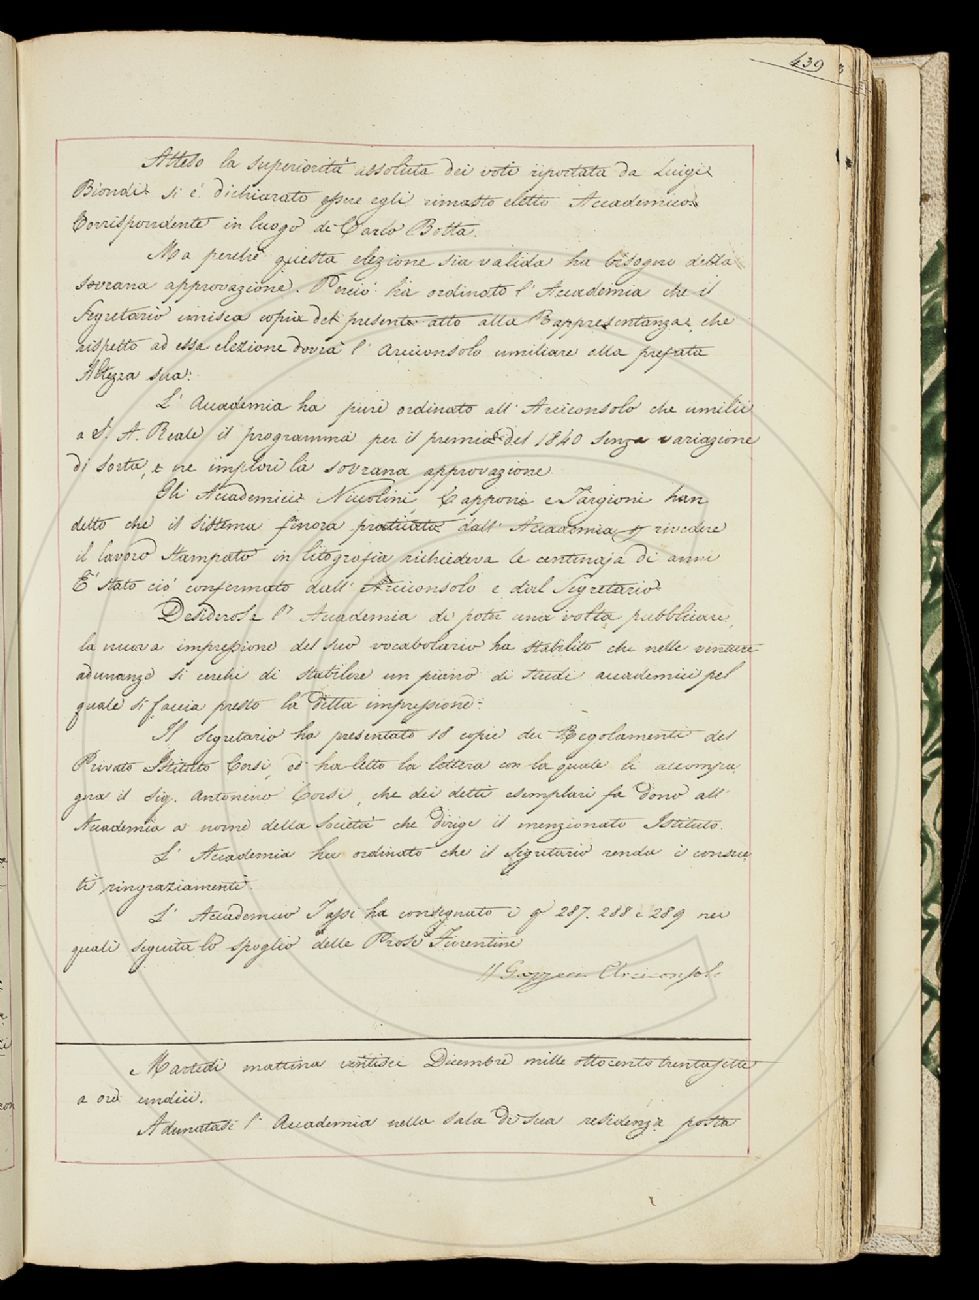 439
Atteso la superiorità assoluta dei voti riportata da Luigi
Biondi si è dichiarato essere egli rimasto eletto Accademico
Corrispondente in luogo di Carlo Botta.
Ma perchè questa elezione sia valida ha bisogno della
sovrana approvazione. Perciò ha ordinato l'Accademia che il
Segretario unisca copia del presente atto alla Rappresentanza, che
rispetto ad essa elezione dovrà l'Arciconsolo umiliare alla prefata
Altezza sua.
L'Accademia ha pure ordinato all'Arciconsolo che umilii
a S. A. Reale il programma per il premio del 1840 senza variazione
di sorta, e ne implori la sovrana approvazione
Gli Accademici Niccolini, Capponi e Targioni han
detto che il sistema finora praticato dall'Accademia p rivedere
il lavoro stampato in litografia richiedeva le centinaja di anni
È stato ciò confermato dall'Arciconsolo e dal Segretario
Desiderosa l'Accademia di poter una volta pubblicare
la nuova impressione del suo vocabolario ha stabilito che nelle venture
adunanze si cerchi di stabilire un piano di studi accademici pel
quale si faccia presto la detta impressione.
Il Segretario ha presentato 18 copie dei Regolamenti del
Privato Istituto Corsi, ed ha letto la lettera con la quale le accompa
gna il Sig. Antonino Corsi, che dei detti esemplari fa dono all'
Accademia a nome della Società che dirige il menzionato Istituto.
L'Accademia ha ordinato che il Segretario renda i consue
ti ringraziamenti.
L'Accademico Tassi ha consegnato i qi 287. 288 e 289 nei
quali seguita lo spoglio delle Prose Fiorentine
Arciconsolo
Martedì mattina ventisei Dicembre mille ottocento trentasette
a ore undici.
Adunatasi l'Accademia nella sala di sua residenza posta